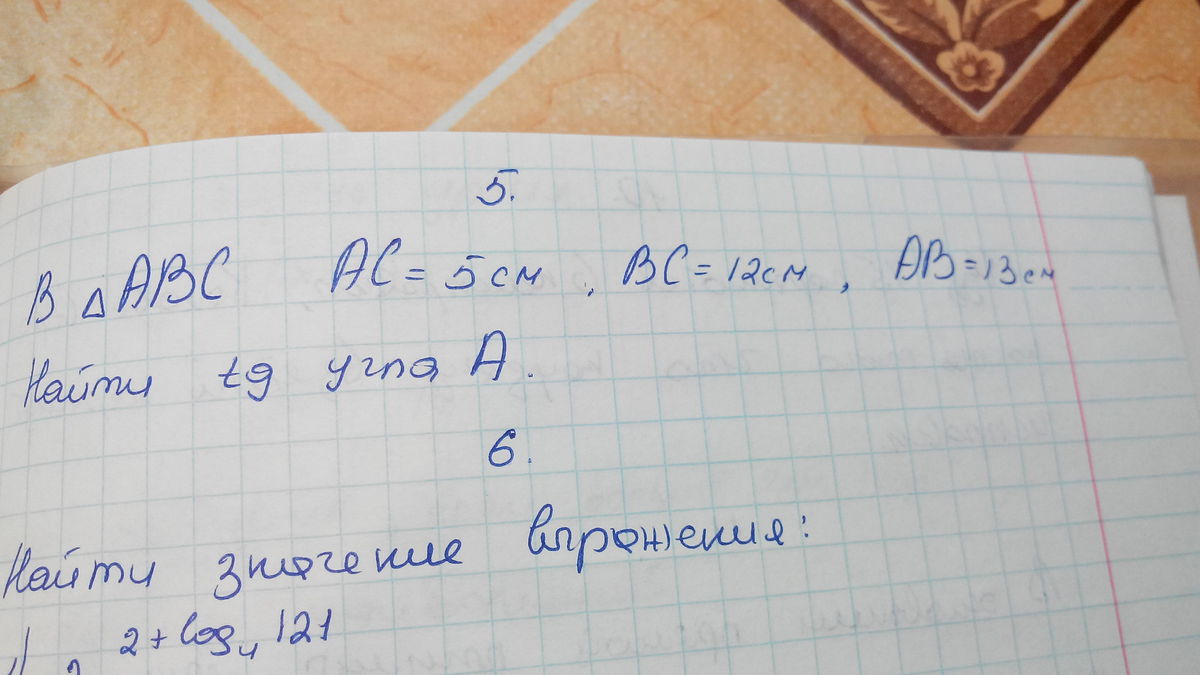 5.
В △ABC AC = 5 см, BC = 12 см, AB = 13 см
Найти tg угла A.
6.
Найти значение выражения:
2 + log₄ 121